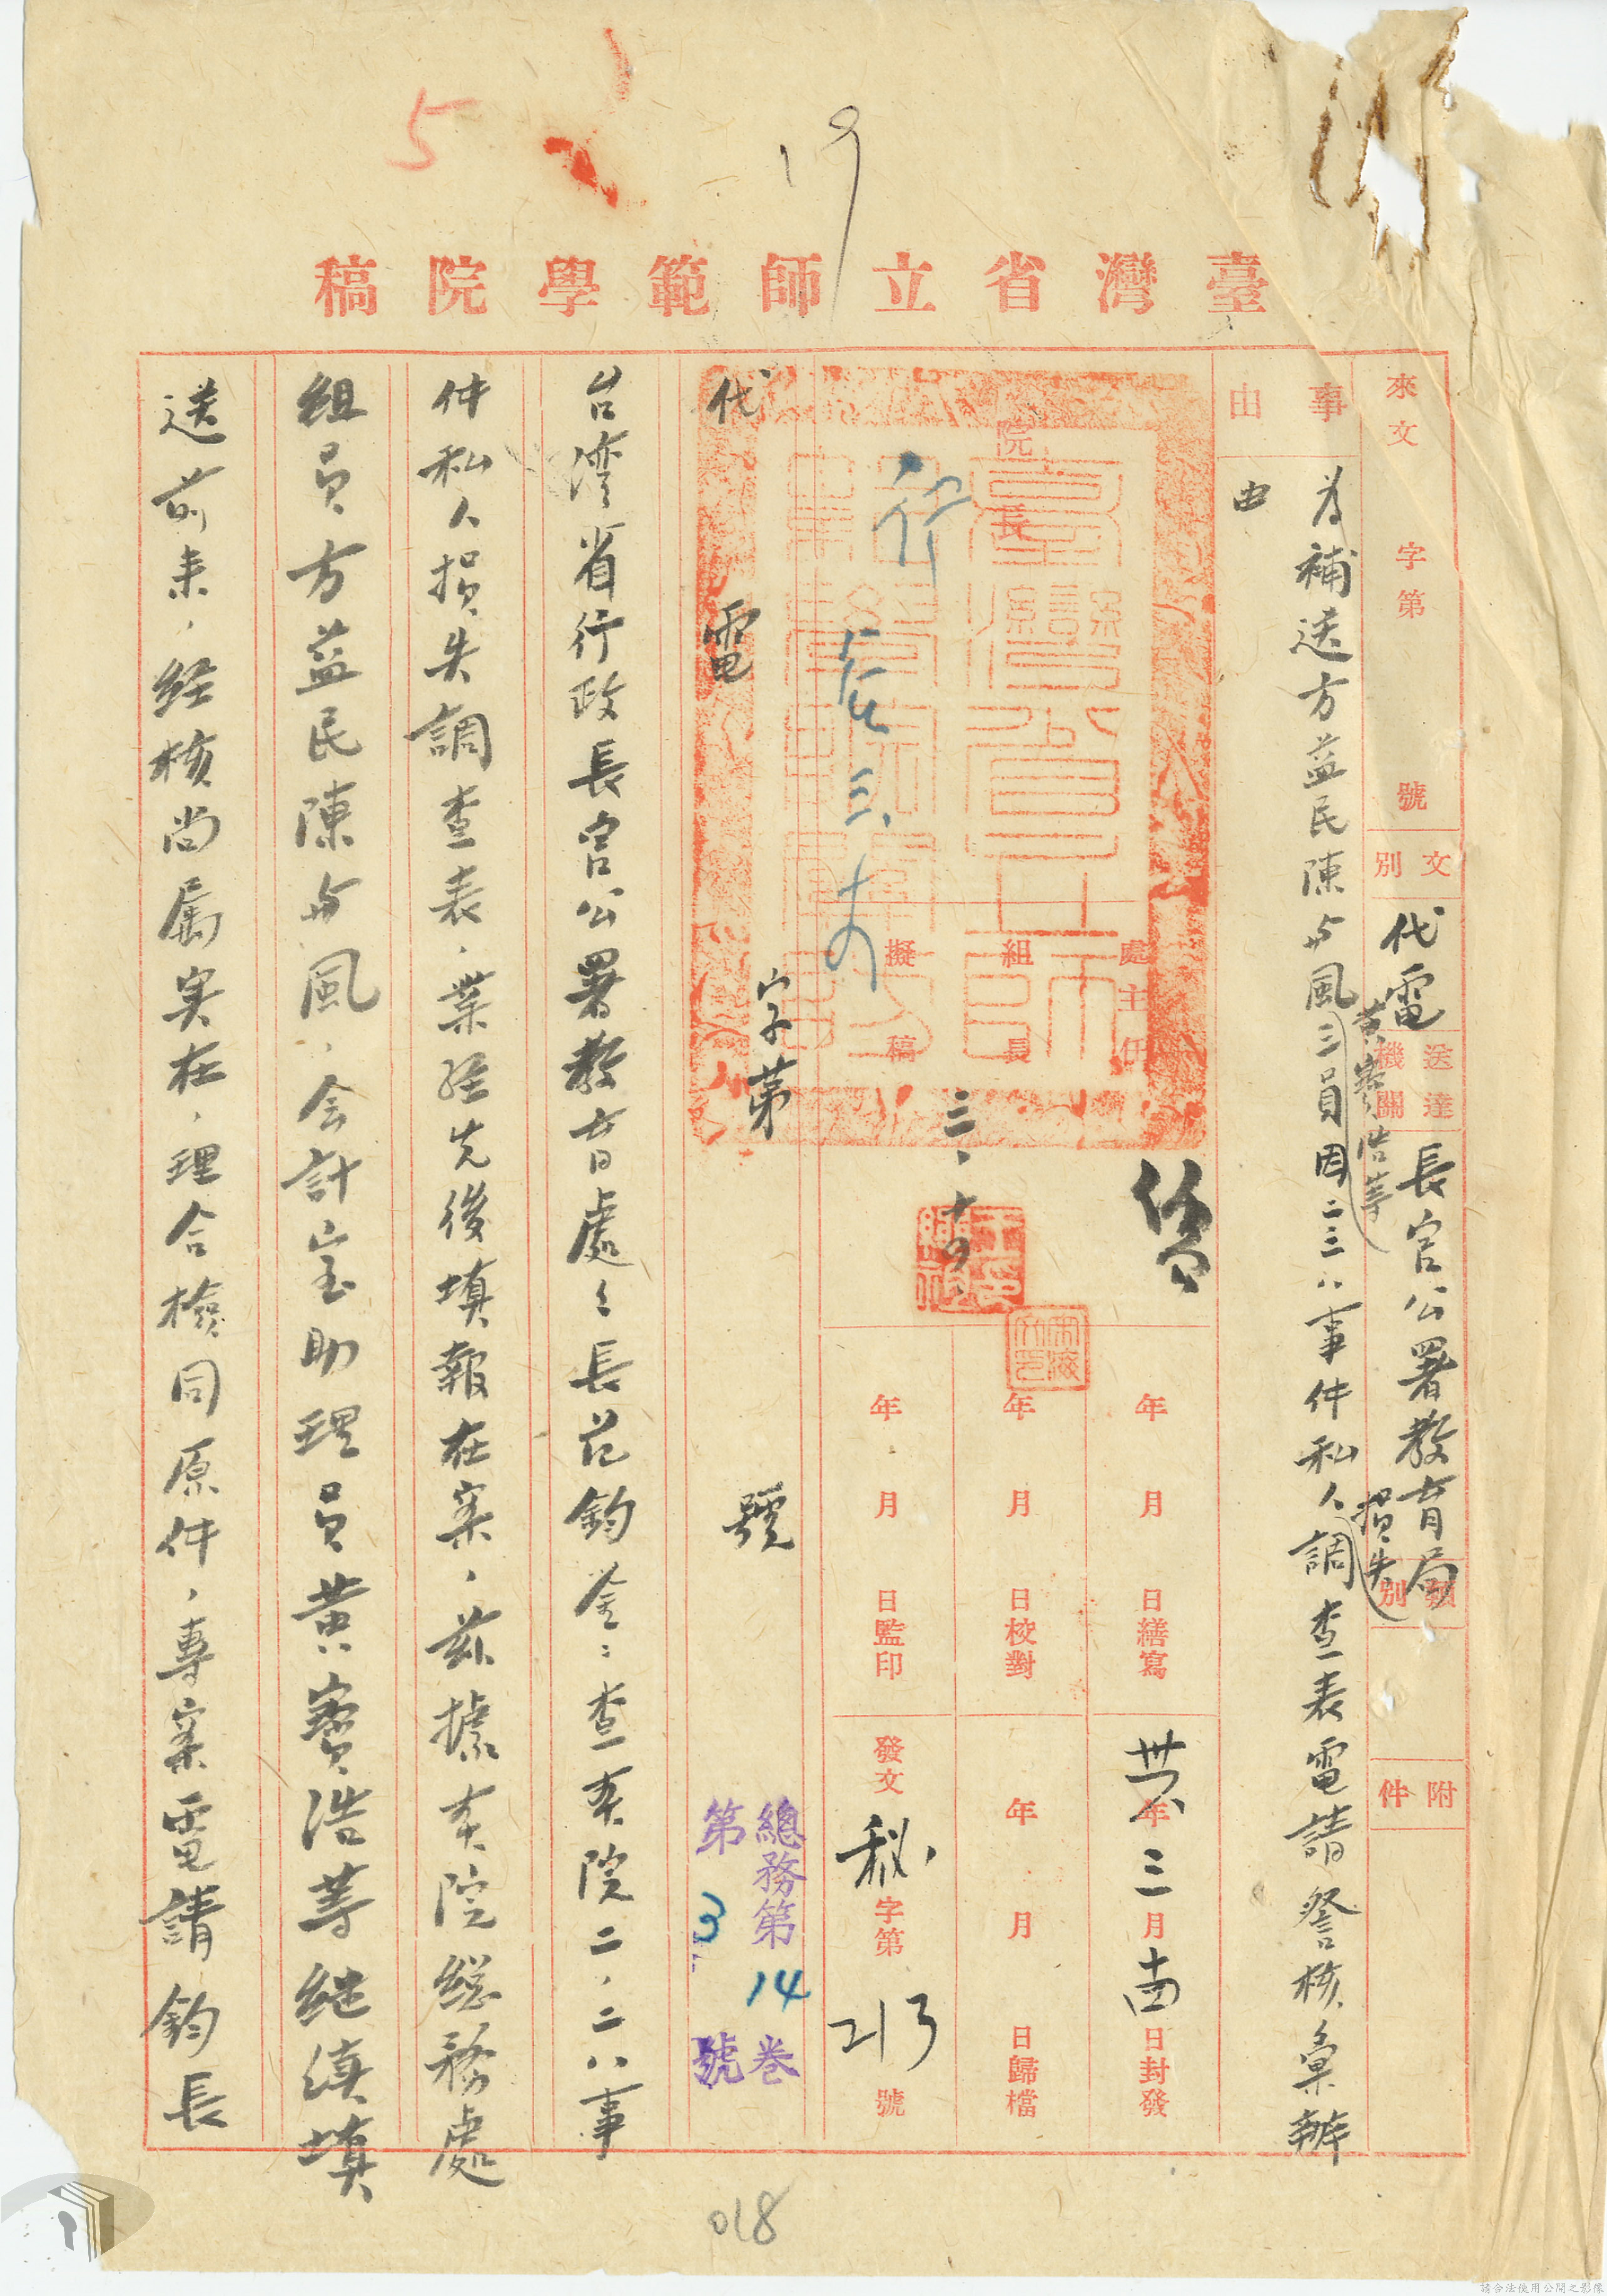 5
19
臺灣省立師範學院稿
來文 字第 號
文別 代電
送達機關 長官公署教育局
類別
附件
事由
為補送方益民陳與風三員因二二八事件私人調查表電請詧核彙辦
黃寶浩等
損失
由
院長
處主任
組長
擬稿
三、十四、
年 月 日繕寫
年 月 日校對
年 月 日監印
卅六年三月十四日封發
年 月 日歸檔
發文 秘字第 213 號
代電 字第 號
總務第 14 卷
第 3 號
台湾省行政長官公署教育處々長范鈞鉴：查本院二、二八事
件私人損失調查表，業經先後填報在案，茲據本院総務處
組員方益民陳與風，会計室助理員黃寶浩等繼續填
送前来，経核尚属実在，理合檢同原件，專案電請鈞長
018
請合法使用公開之影像